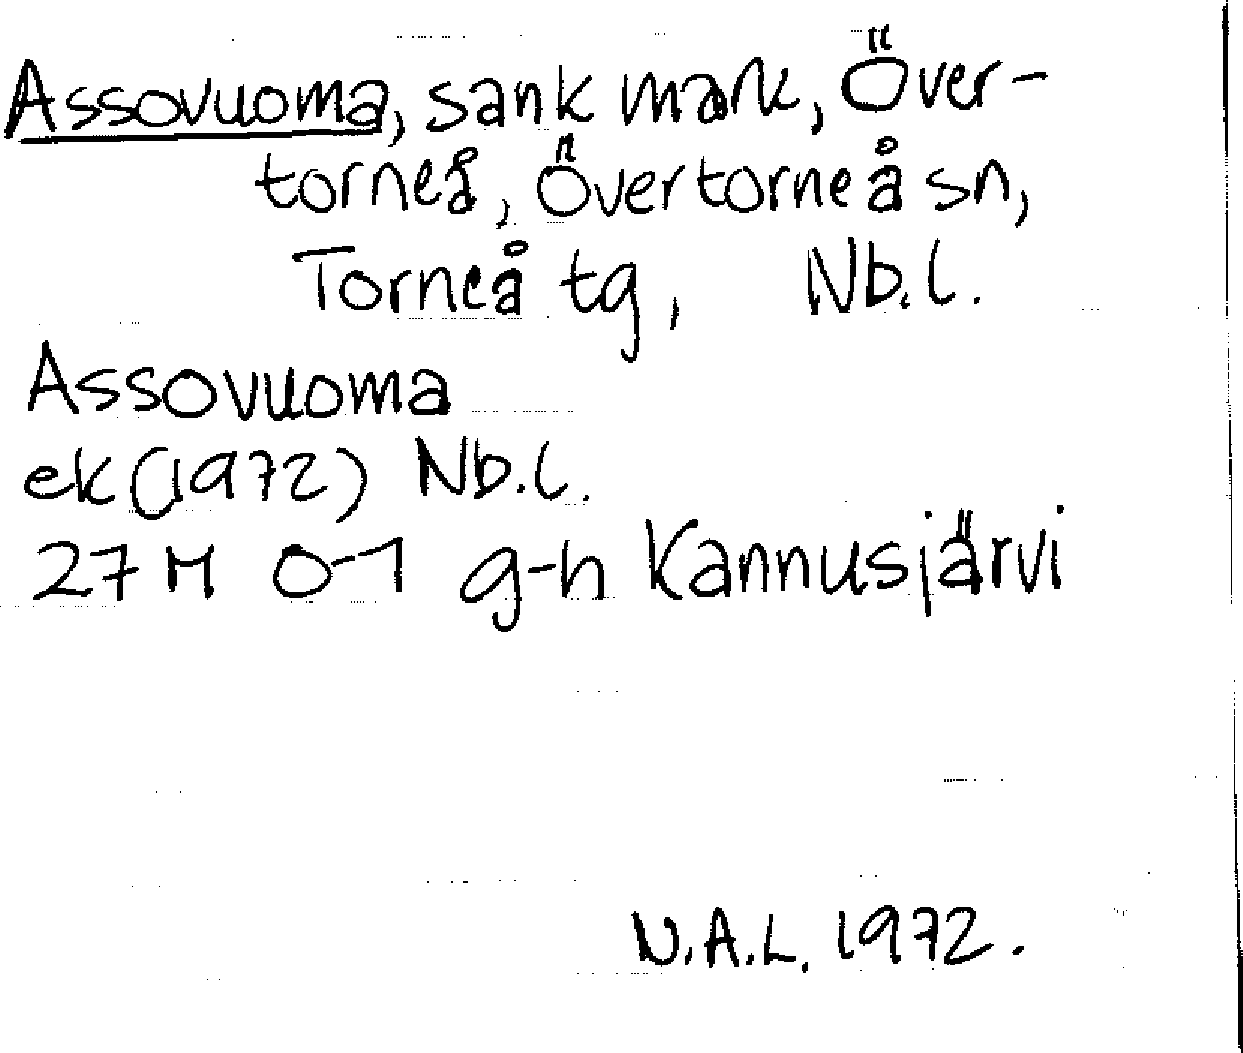 Assovuoma, sank mark, Över-
torneå, Övertorneå sn,
Torneå tg, Nb.l.
Assovuoma
ek (1972) Nb.l.
27 M 0-1 g-h Kannusjärvi
N.A.L. 1972.